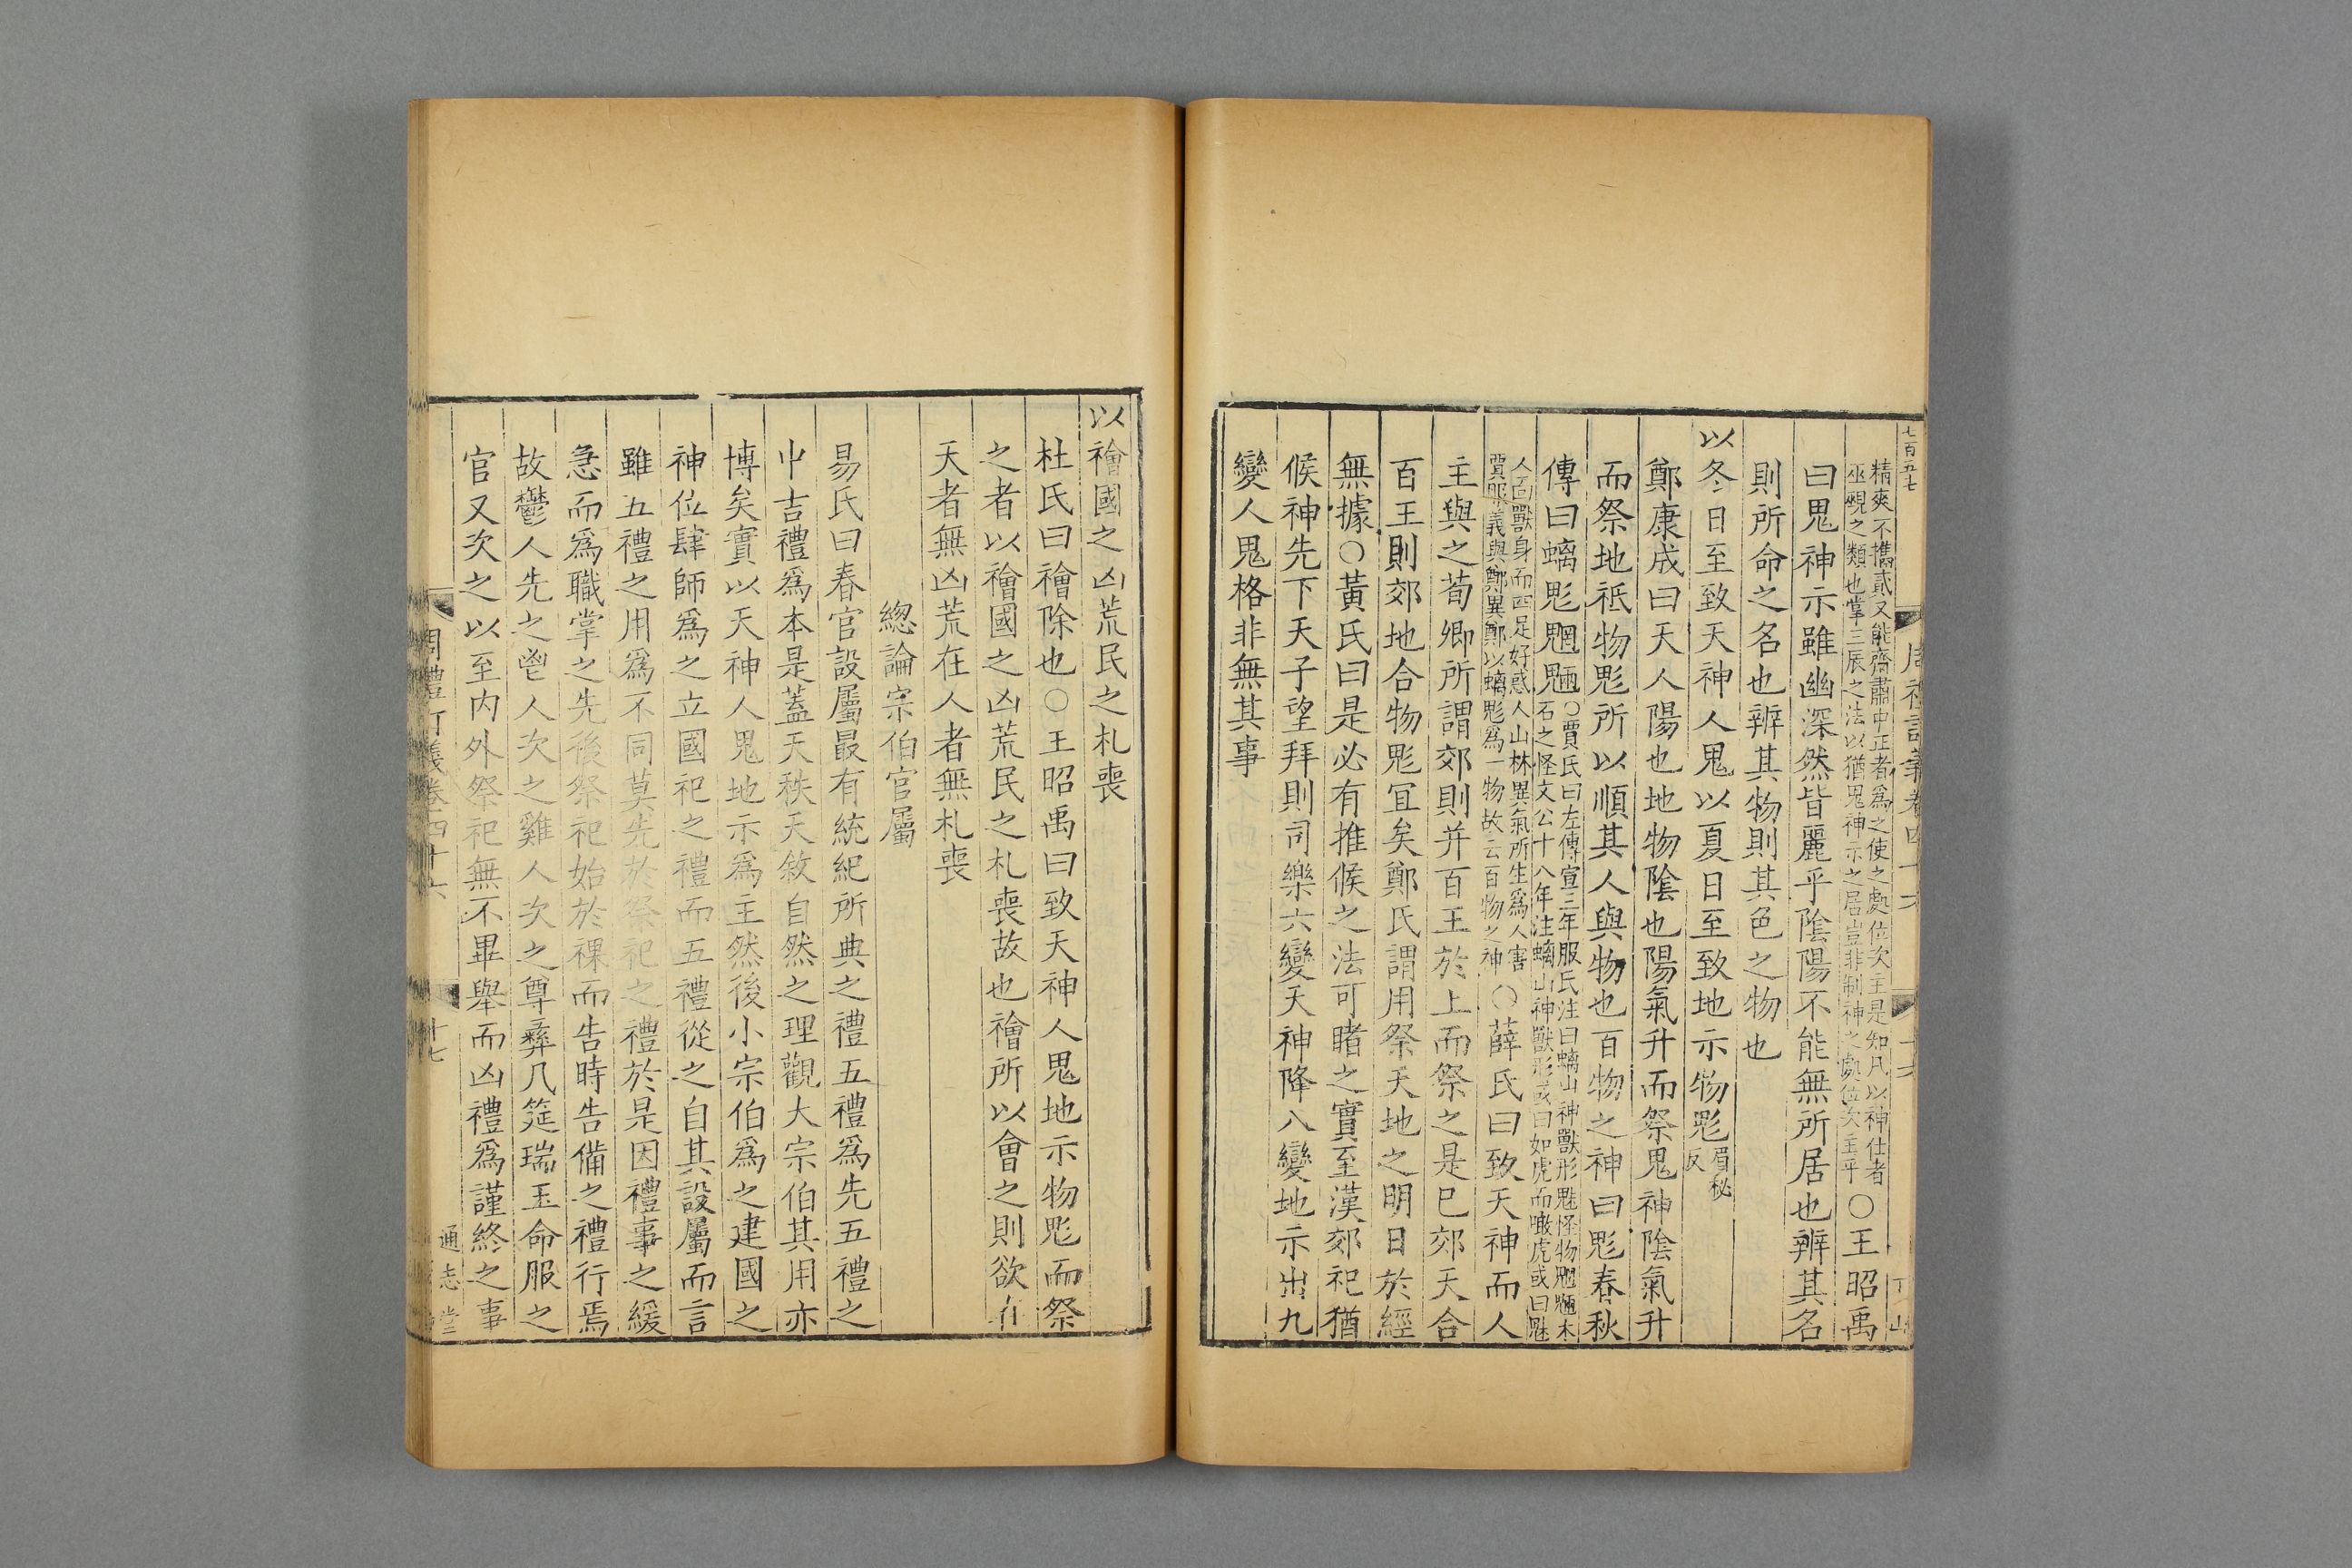 七百五七
周禮訂義卷四十六
十六
精爽不攜貳又能齊肅中正者爲之使之處位次主是知凡以神仕者
巫覡之類也掌三辰之法以猶鬼神示之居豈非制神之處位次主乎○王昭禹
曰鬼神示雖幽深然皆麗乎陰陽不能無所居也辨其名
則所命之名也辨其物則其色之物也
以冬日至致天神人鬼以夏日至致地示物鬽眉秘反
鄭康成曰天人陽也地物陰也陽氣升而祭鬼神陰氣升
而祭地祗物鬽所以順其人與物也百物之神曰鬽春秋
傳曰螭鬽魍魎○賈氏曰左傳宣三年服氏注曰螭山神獸形魅怪物魍魎木
石之怪文公十八年注螭山神獸形或曰如虎而噉虎或曰魅
人面獸身而四足好惑人山林異氣所生爲人害
賈服義與鄭異鄭以螭鬽爲一物故云百物之神○薛氏曰致天神而人
主與之荀卿所謂郊則并百王於上而祭之是巳郊天合
百王則郊地合物鬽宜矣鄭氏謂用祭天地之明日於經
無據○黃氏曰是必有推候之法可睹之實至漢郊祀猶
候神先下天子望拜則司樂六變天神降八變地示出九
變人鬼格非無其事
以禬國之凶荒民之札喪
杜氏曰禬除也○王昭禹曰致天神人鬼地示物鬽而祭
之者以禬國之凶荒民之札喪故也禬所以會之則欲在
天者無凶荒在人者無札喪
緫論宗伯官屬
易氏曰春官設屬最有統紀所典之禮五禮爲先五禮之
中吉禮爲本是蓋天秩天敘自然之理觀大宗伯其用亦
博矣實以天神人鬼地示爲主然後小宗伯爲之建國之
神位肆師爲之立國祀之禮而五禮從之自其設屬而言
雖五禮之用爲不同莫先於祭祀之禮於是因禮事之緩
急而爲職掌之先後祭祀始於祼而告時告備之禮行焉
故鬱人先之鬯人次之雞人次之尊彝几筵瑞玉命服之
官又次之以至内外祭祀無不畢舉而凶禮爲謹終之事
周禮訂義卷四十六
十七
通志堂